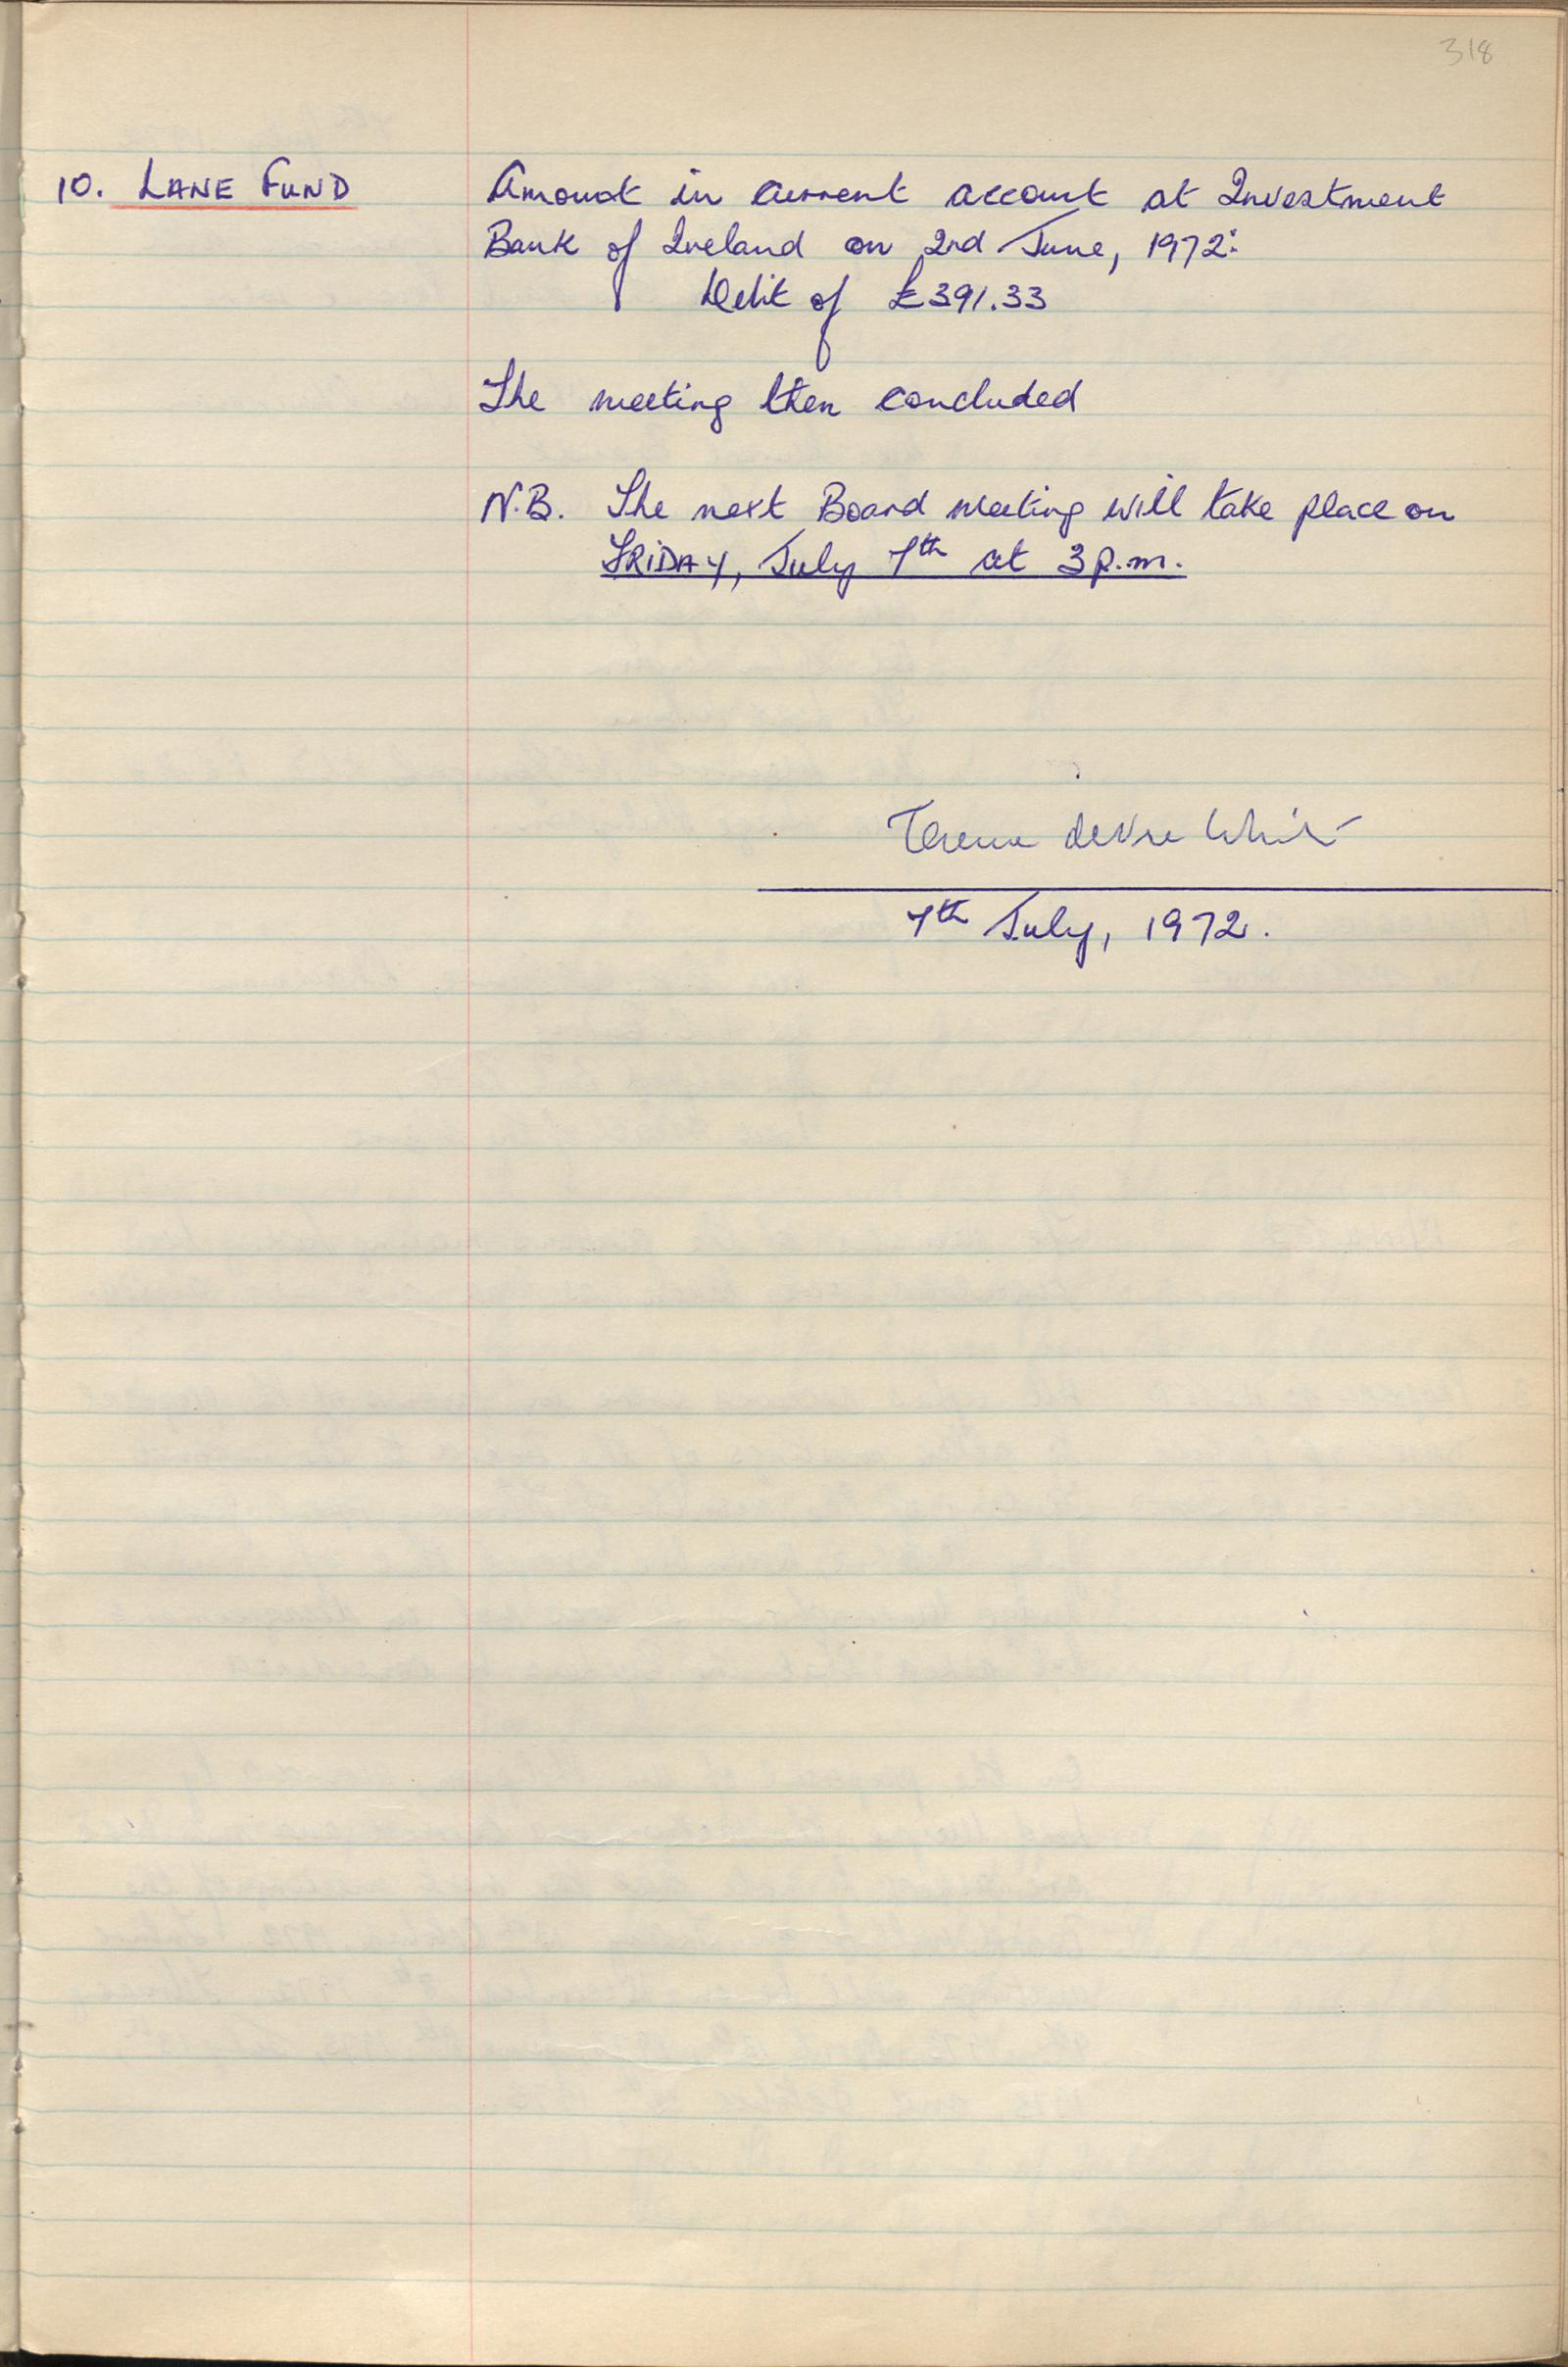 318
10. LANE FUND
Amount in current account at Investment
Bank of Ireland on 2nd June, 1972:
Debit of £391.33
The meeting then concluded
N.B. The next Board meeting will take place on
FRIDAY, July 7th at 3p.m.
Terence deVere White
7th July, 1972.